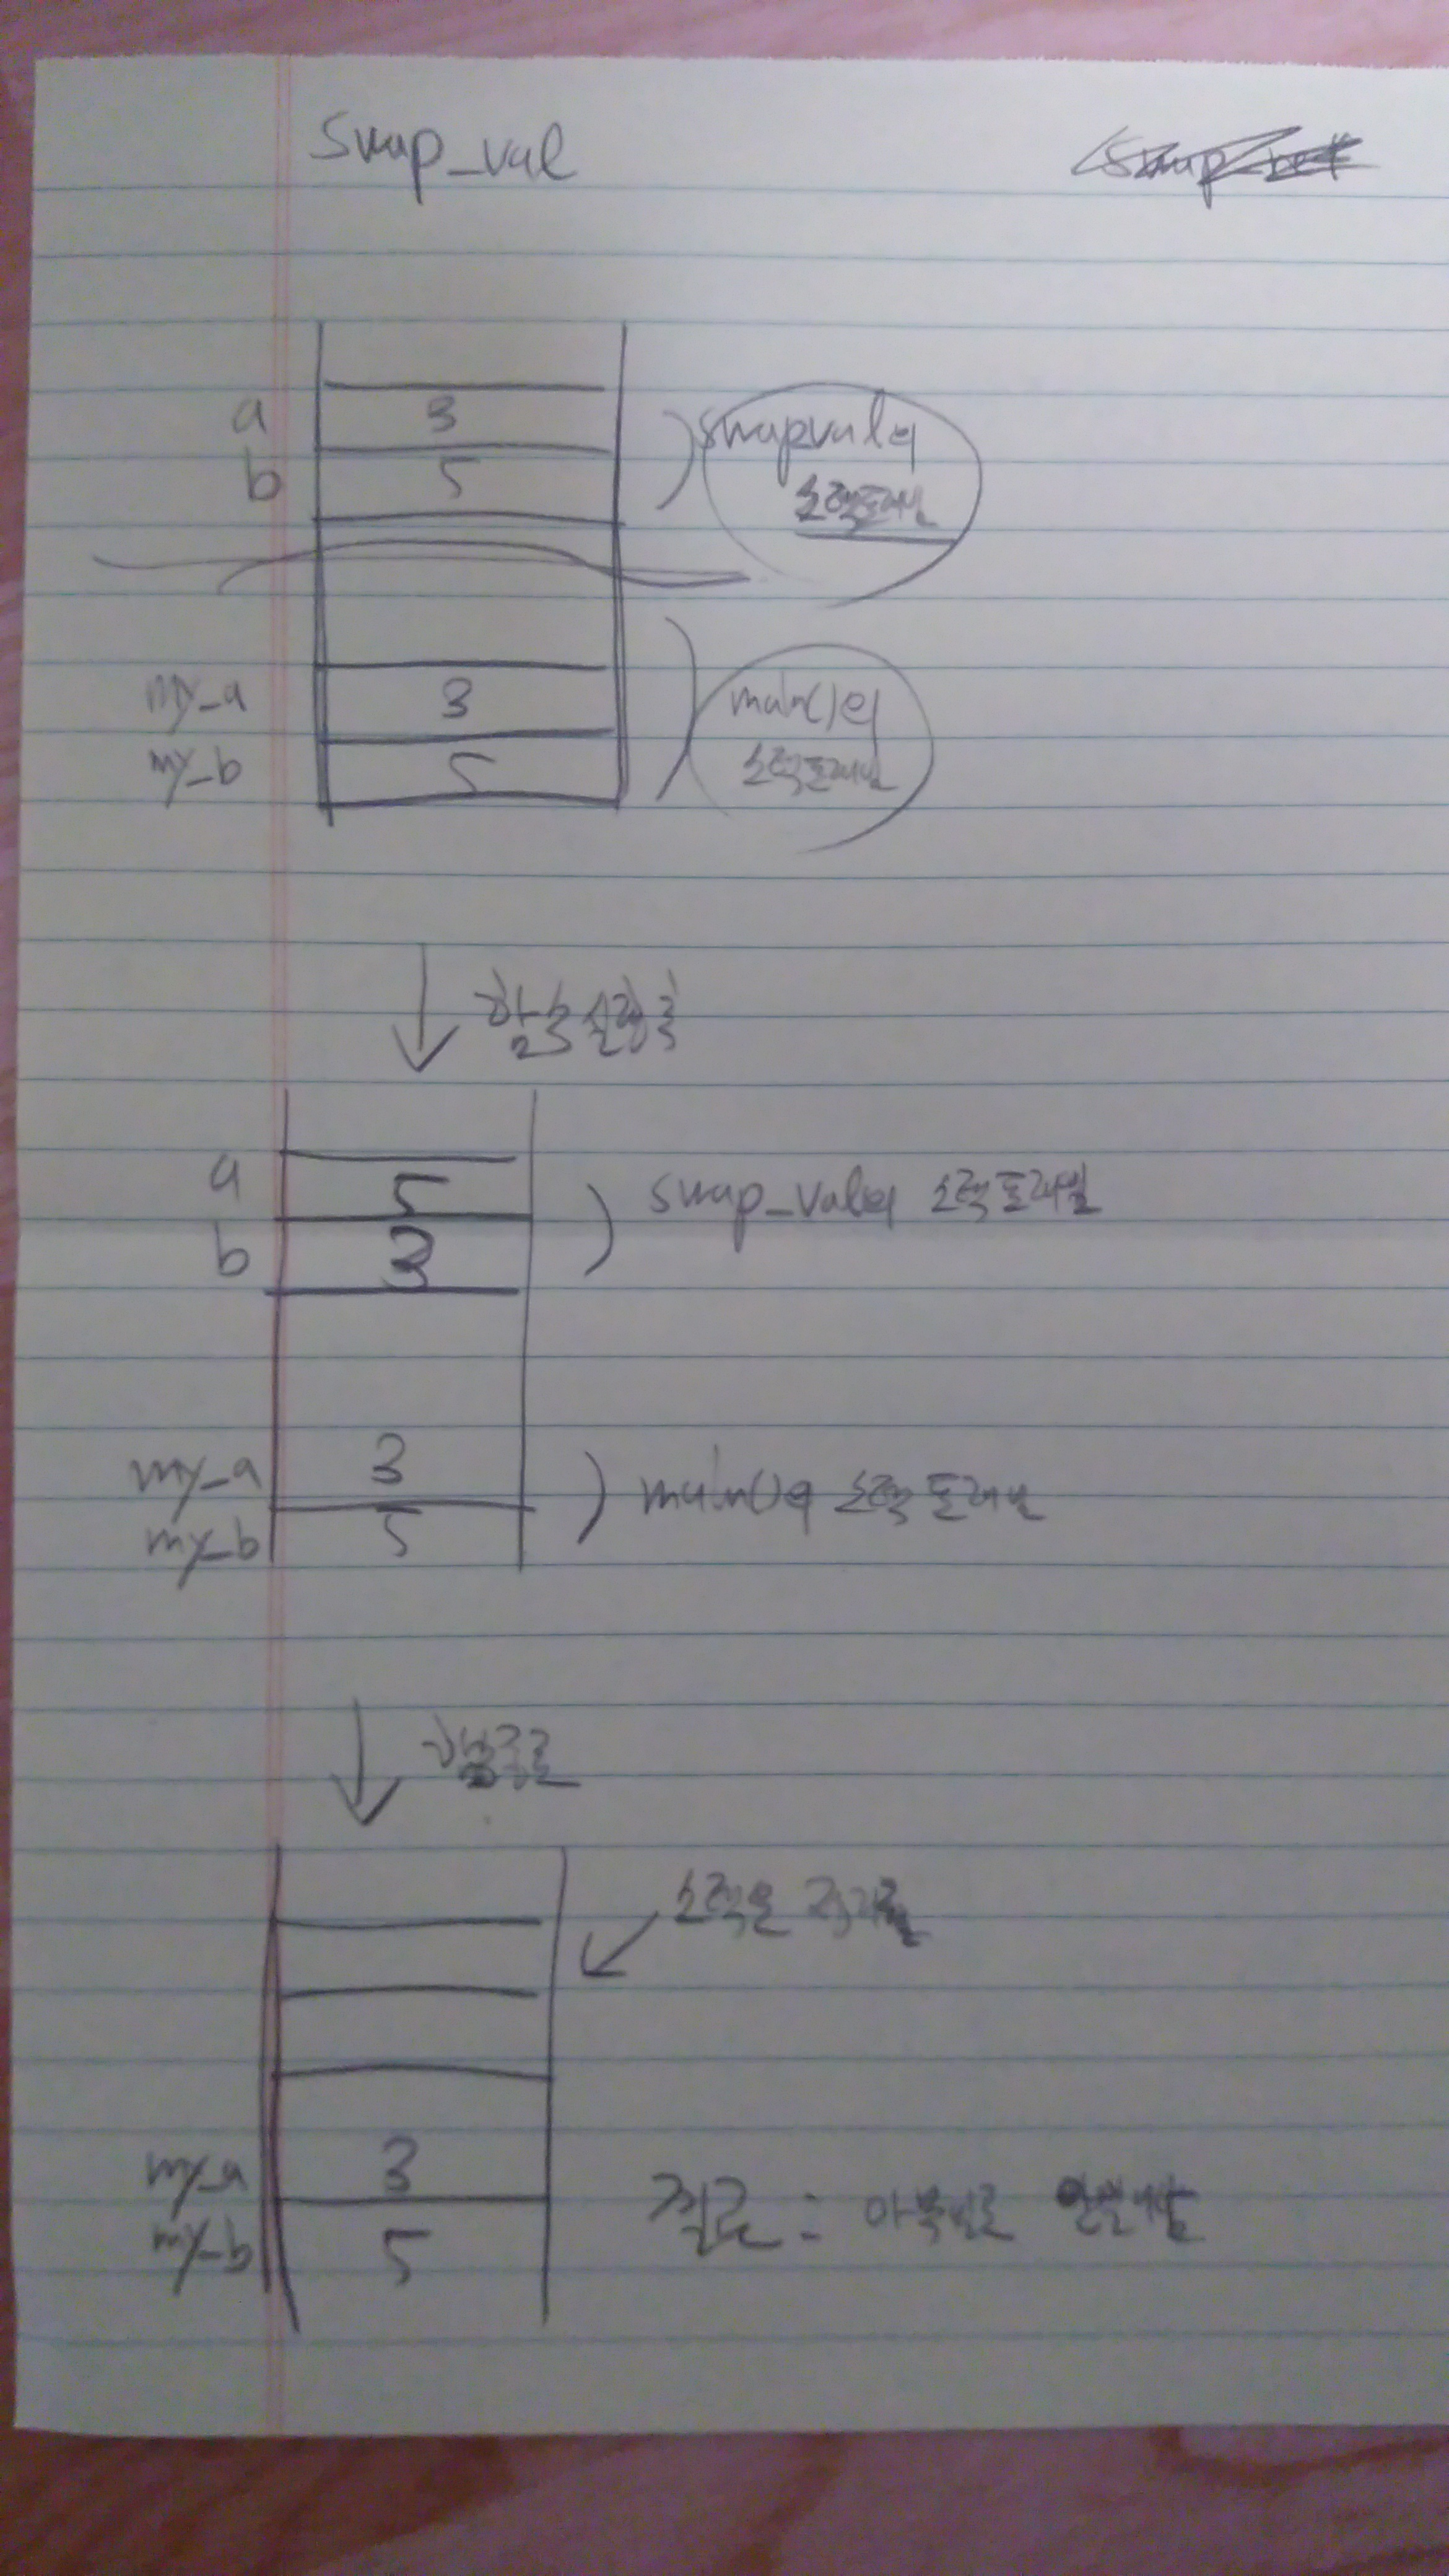 swap_val
a 3
b 5
swapval의
스택프레임
my_a 3
my_b 5
main()의
스택프레임
함수실행후
a 5
b 3
swap_val의 스택프레임
my_a 3
my_b 5
main()의 스택프레임
함수종료
스택은 정리됨
my_a 3
my_b 5
결론: